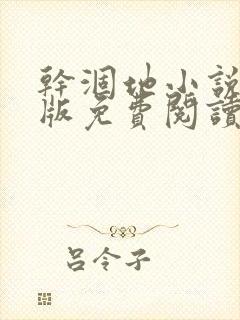 幹涸地小說
版免費閱讀
呂令子